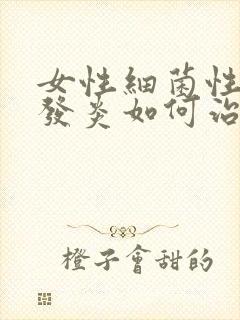 女性細菌性
發炎如何治
橙子會甜的